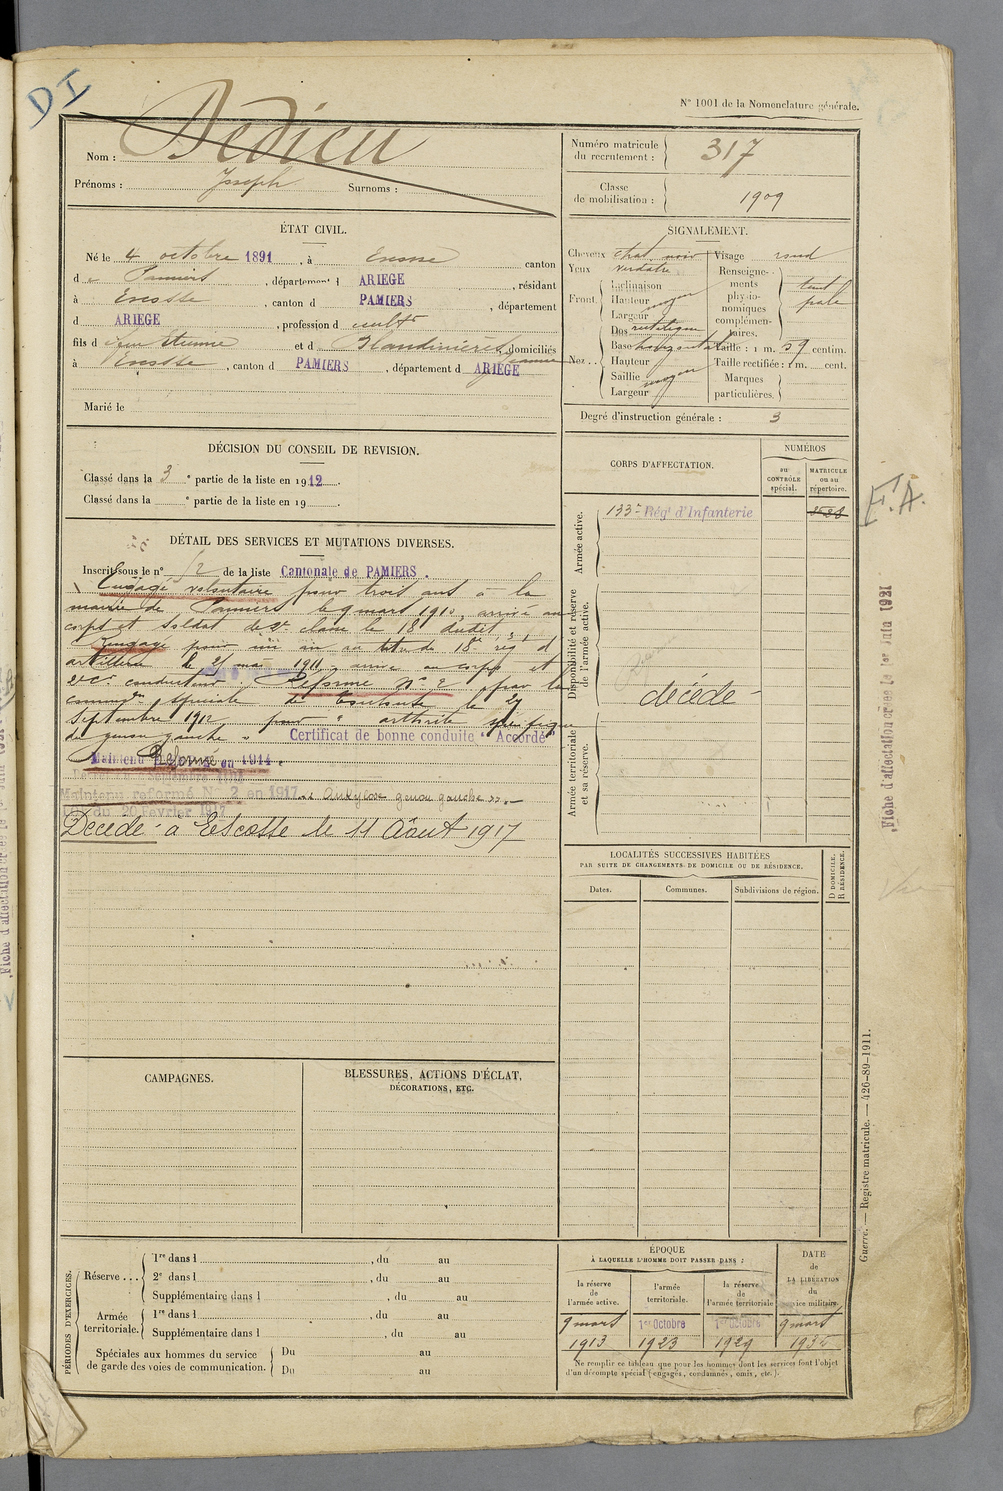 DI
N° 1001 de la Nomenclature générale.
Nom : Dedieu
Prénoms : Joseph Surnoms :
Numéro matricule du recrutement : 317
Classe de mobilisation : 1909
ÉTAT CIVIL.
Né le 4 octobre 1891, à Escosse canton
de Pamiers, département d ARIEGE, résidant
à Escosse, canton d PAMIERS, département
d ARIEGE, profession de cultr
fils d Jean Etienne et d Blandinières Jeanne, domiciliés
à Escosse, canton d PAMIERS, département d ARIEGE
Marié le
SIGNALEMENT.
Cheveux chat. noir
Yeux verdatre
Front.
Inclinaison
Hauteur moyen
Largeur
Nez..
Dos rectiligne
Base horizontale
Hauteur
Saillie moyen
Largeur
Visage rond
Renseignements physionomiques complémentaires. teint pale
Taille : 1 m. 59 centim.
Taille rectifiée : 1 m. cent.
Marques particulières.
Degré d'instruction générale : 3
DÉCISION DU CONSEIL DE REVISION.
Classé dans la 3e partie de la liste en 1912.
Classé dans la e partie de la liste en 19 .
DÉTAIL DES SERVICES ET MUTATIONS DIVERSES.
Inscrit sous le n° 52 de la liste Cantonale de PAMIERS.
Engagé volontaire pour trois ans à la
mairie de Pamiers le 9 mars 1910, arrivé au
corps et soldat de 2e classe le 18 dudit
Rengagé pour un an au titre du 18e rég d
artillerie le 21 mai 1911 arrivé au corps et
2e Cr conducteur Réformé N° 2 par la
common spéciale de Toulouse le 27
septembre 1912 pour " arthrite spécifique
du genou gauche " Certificat de bonne conduite "Accordé"
Maintenu Réformé en 1914
Maintenu reformé N° 2 en 1917 "Ankylose genou gauche".
du 20 Février 1917
Décédé à Escosse le 11 Août 1917
CORPS D'AFFECTATION.
NUMÉROS
au CONTRÔLE spécial.
MATRICULE ou au répertoire.
Armée active.
133e Régt d'Infanterie
Disponibilité et réserve de l'armée active.
décédé
Armée territoriale et sa réserve.
F.A.
Fiche d'affectation créée le 1er Juin 1921
LOCALITÉS SUCCESSIVES HABITÉES
PAR SUITE DE CHANGEMENTS DE DOMICILE OU DE RÉSIDENCE.
Dates.
Communes.
Subdivisions de région.
D DOMICILE.
R RÉSIDENCE.
CAMPAGNES.
BLESSURES, ACTIONS D'ÉCLAT,
DÉCORATIONS, ETC.
PÉRIODES D'EXERCICES.
Réserve ...
1re dans l , du au
2e dans l , du au
Supplémentaire dans l , du au
Armée territoriale.
1re dans l , du au
Supplémentaire dans l , du au
Spéciales aux hommes du service de garde des voies de communication.
Du au
Du au
ÉPOQUE
À LAQUELLE L'HOMME DOIT PASSER DANS :
la réserve de l'armée active.
l'armée territoriale.
la réserve de l'armée territoriale
DATE de LA LIBÉRATION du service militaire.
9 mars 1913
1er Octobre 1923
1er Octobre 1929
9 mars
Ne remplir ce tableau que pour les hommes dont les services font l'objet
d'un décompte spécial (engagés, condamnés, omis, etc.).
Guerre. — Registre matricule. — 426-89-1911.